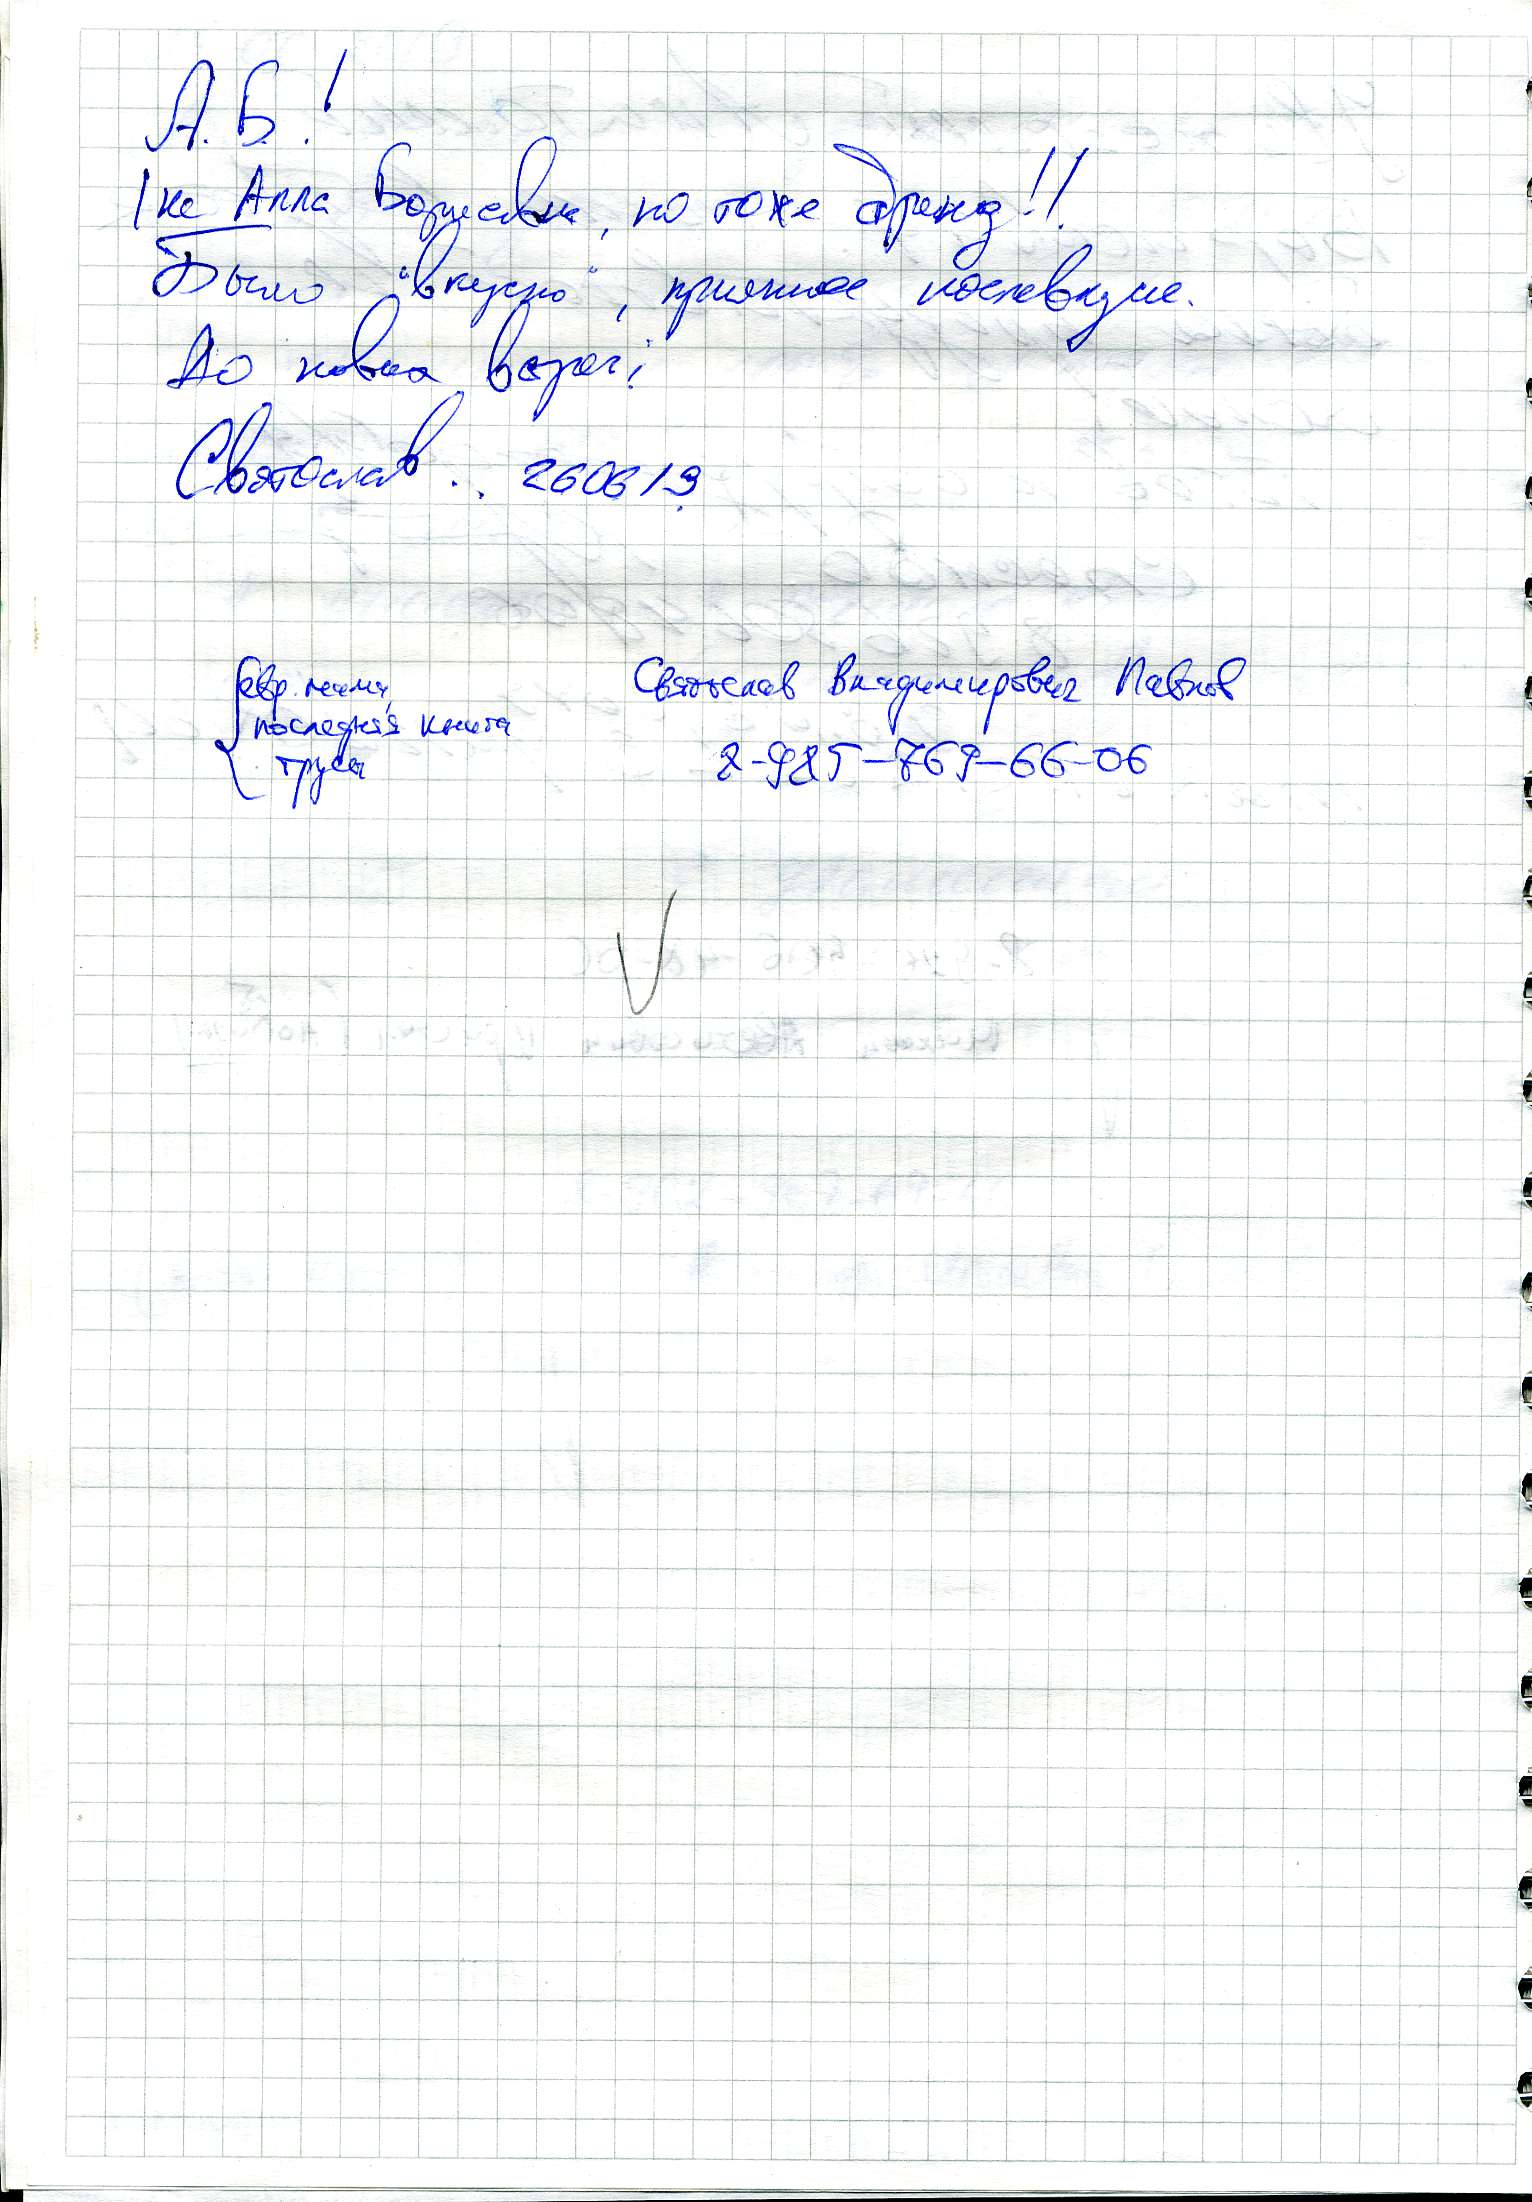 А.Б.!
не Алла Борисовна, но тоже бренд!!
Было "вкусно", приятное послевкусие.
До новых встреч!
Святослав.. 260619.
евр. мама, Святослав Владимирович Павлов
последняя книга
трусы 8-985-769-66-06